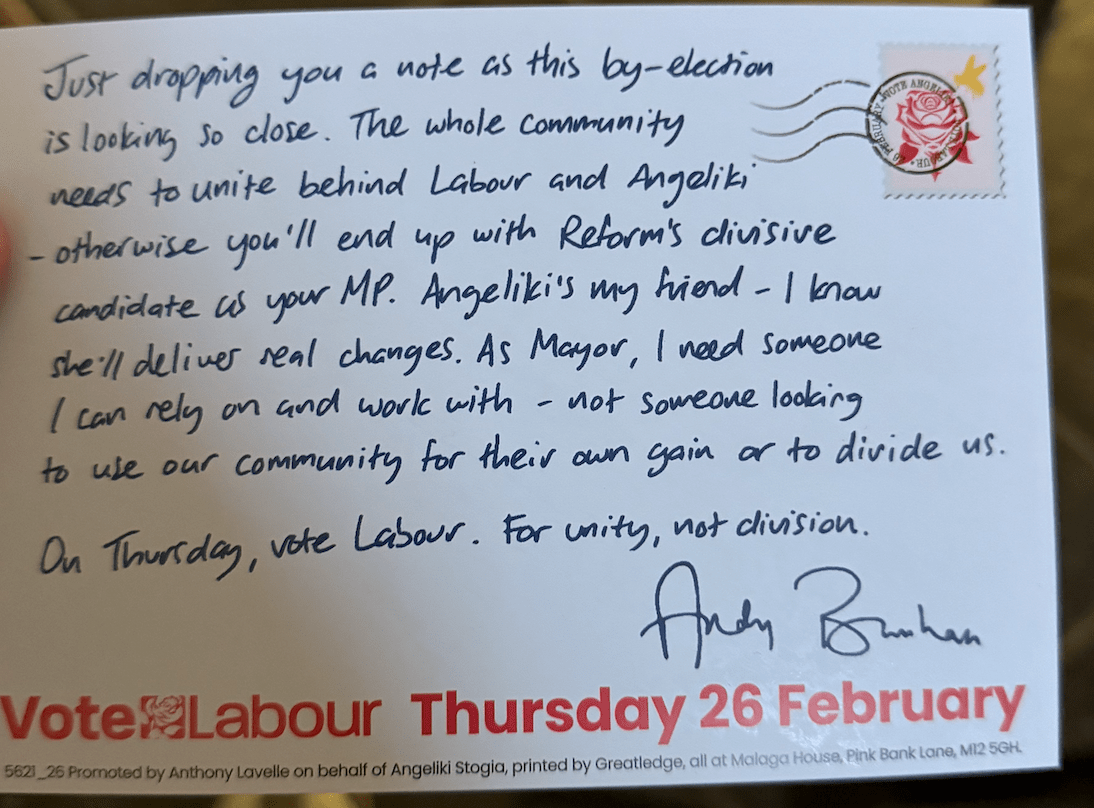 Just dropping you a note as this by-election
is looking so close. The whole community
needs to unite behind Labour and Angeliki
- otherwise you'll end up with Reform's divisive
candidate as your MP. Angeliki's my friend - I know
she'll deliver real changes. As Mayor, I need someone
I can rely on and work with - not someone looking
to use our community for their own gain or to divide us.
On Thursday, vote Labour. For unity, not division.
Andy Burnham
Vote Labour Thursday 26 February
5621_26 Promoted by Anthony Lavelle on behalf of Angeliki Stogia, printed by Greatledge, all at Malaga House, Pink Bank Lane, M12 5GH.